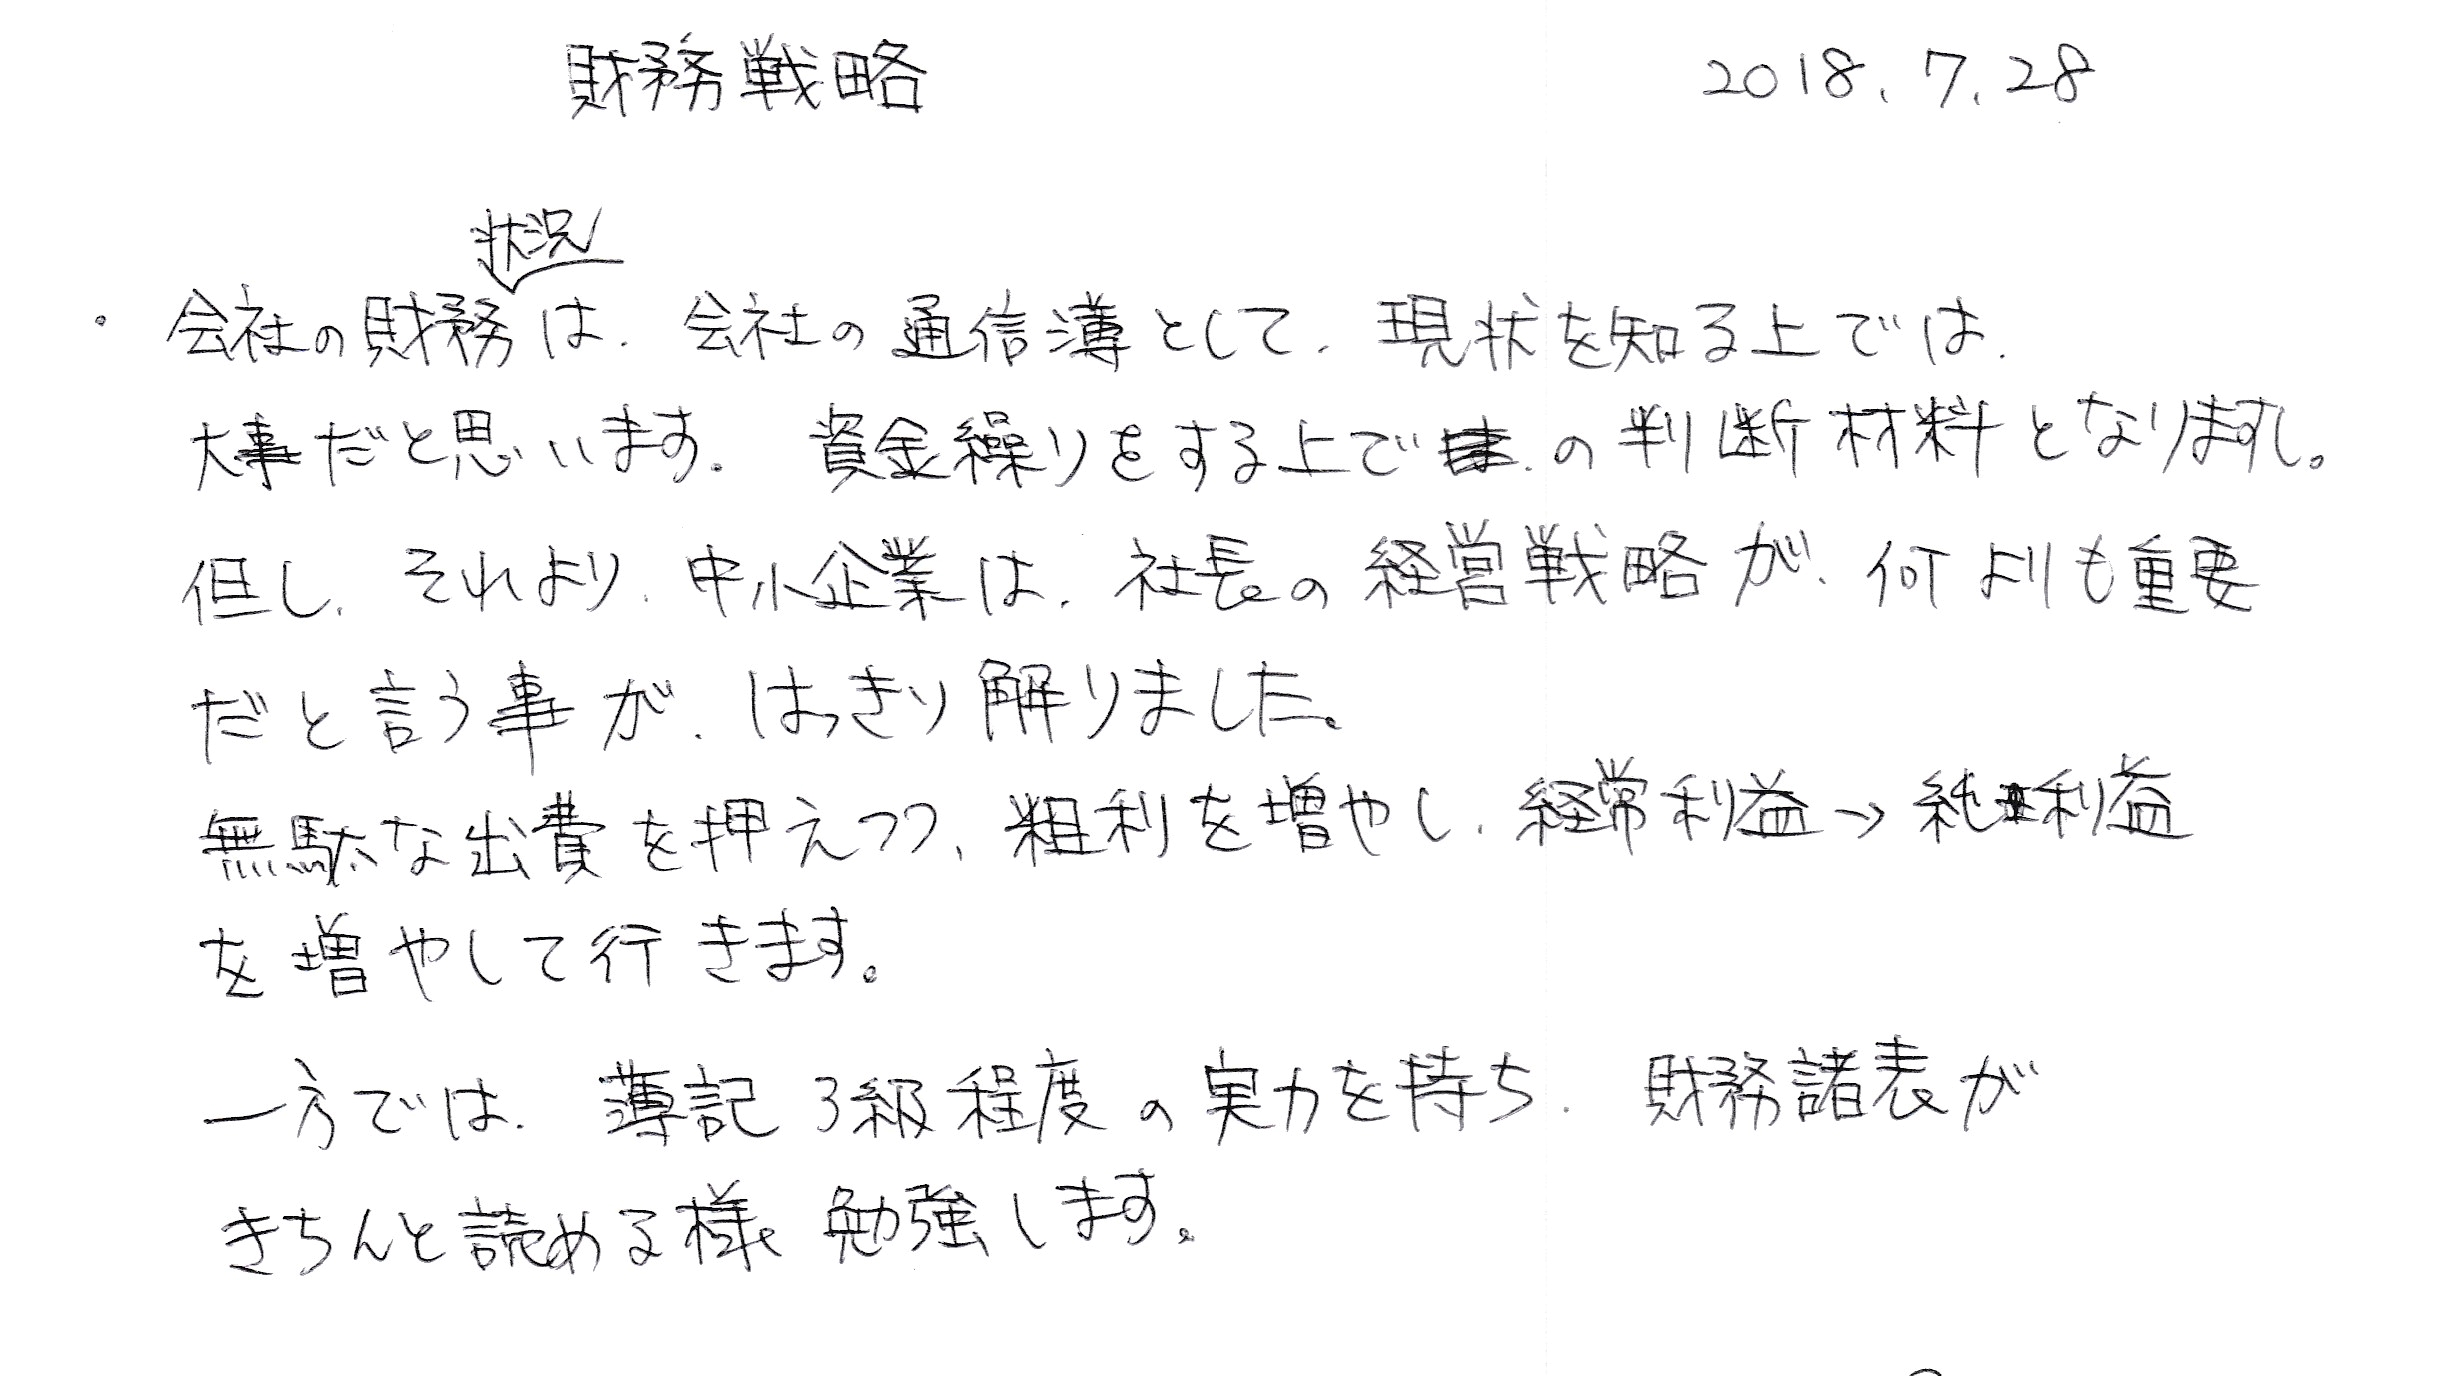 財務戦略 2018.7.28
状況
・会社の財務は、会社の通信薄として、現状を知る上では、
大事だと思います。資金繰りをする上での判断材料となりますし。
但し、それより、中小企業は、社長の経営戦略が、何よりも重要
だと言う事が、はっきり解りました。
無駄な出費を押えつつ、粗利を増やし、経常利益→純利益
を増やして行きます。
一方では、薄記3級程度の実力を持ち、財務諸表が
きちんと読める様、勉強します。